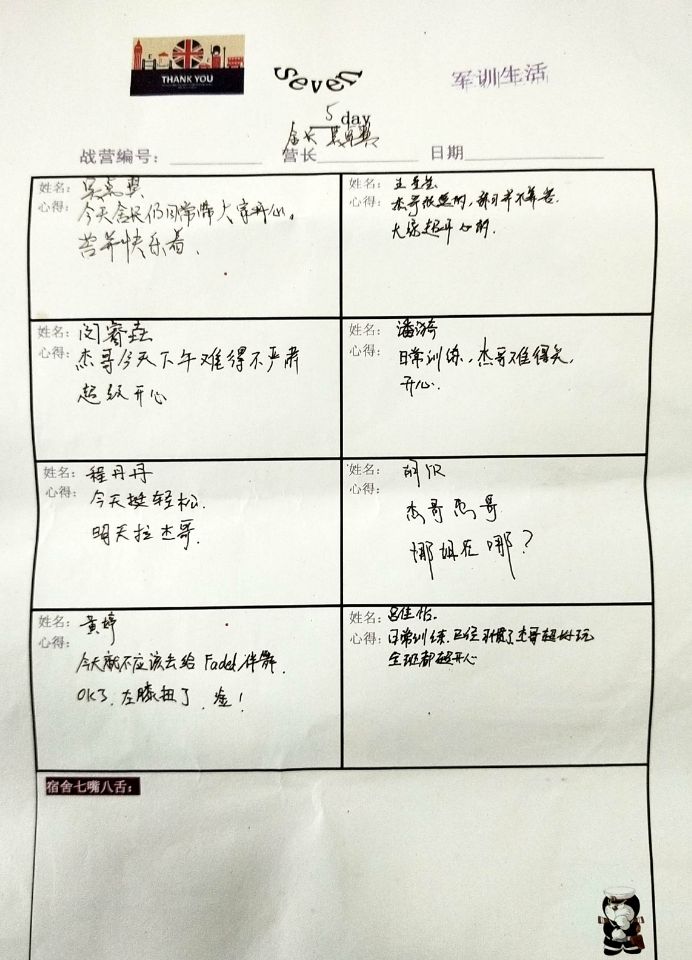 THANK YOU
seven
军训生活
5 day
战营编号：
营长
日期
姓名：
心得：今天 仍旧常带大家开心。
苦并快乐着、
姓名：王
心得：杰哥很 的，
大家超开心的.
姓名：闵睿垚
心得：杰哥今天下午难得不严肃
超级开心
姓名：潘漪
心得：日常训练，杰哥难得笑，
开心.
姓名：程丹丹
心得：今天挺轻松.
明天拉杰哥.
姓名：胡
心得：
杰哥杰哥
娜姐在哪？
姓名：黄婷
心得：
今天就不应该去给 Fadel 伴舞.
OK了，左膝扭了，！
姓名：吕佳怡.
心得：日常训练.已经习惯了杰哥超好玩
全班都超开心
宿舍七嘴八舌：